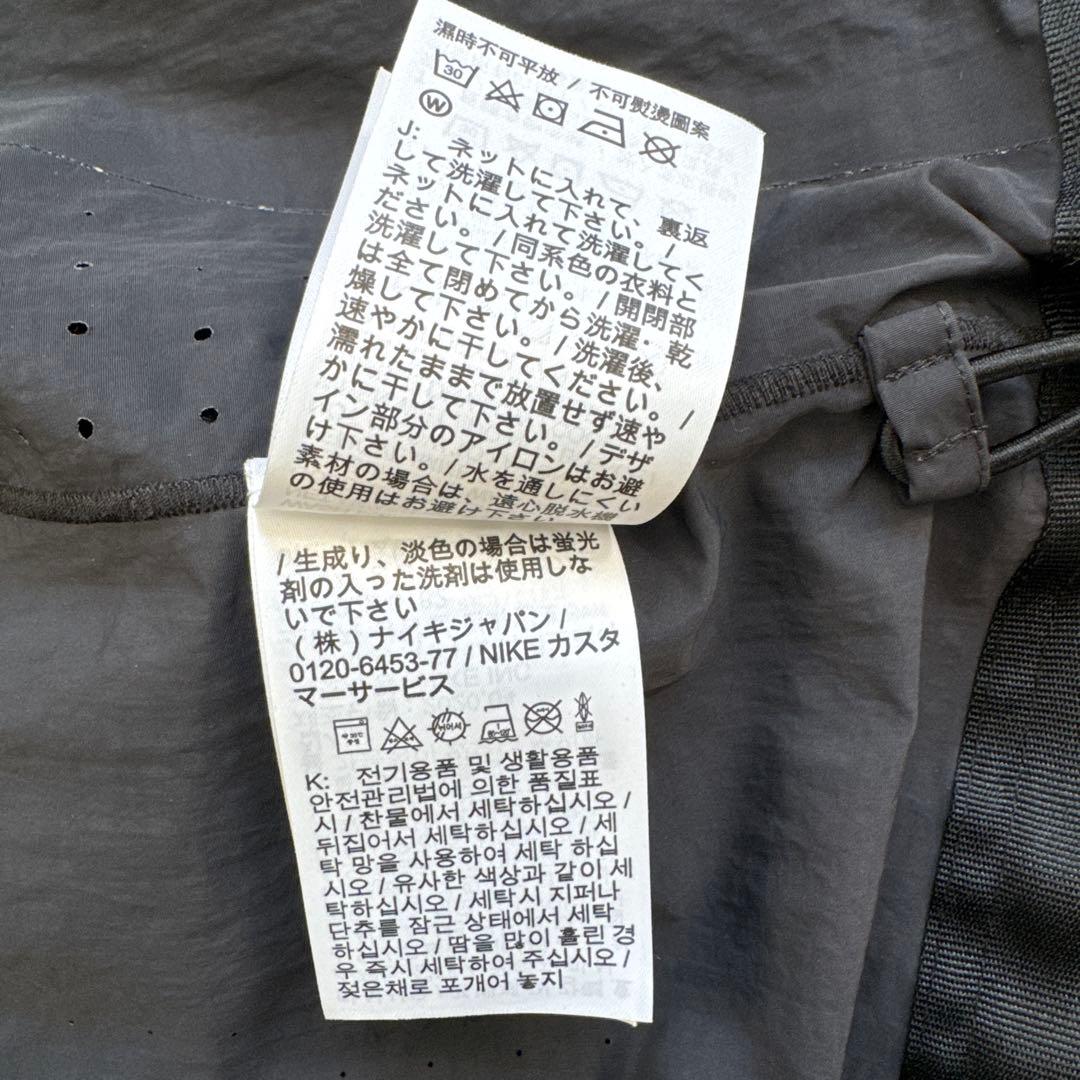 濕時不可平放 / 不可熨燙圖案
30
W
J: ネットに入れて、裏返
して洗濯して下さい。 /
ネットに入れて洗濯してく
ださい。 / 同系色の衣料と
洗濯して下さい。 / 開閉部
は全て閉めてから洗濯・乾
燥して下さい。 / 洗濯後、
速やかに干してください。 /
濡れたままで放置せず速や
かに干して下さい。 / デザ
イン部分のアイロンはお避
け下さい。 / 水を通しにくい
素材の場合は、遠心脱水機
の使用はお避け下さい
/ 生成り、淡色の場合は蛍光
剤の入った洗剤は使用しな
いで下さい
(株) ナイキジャパン /
0120-6453-77 / NIKE カスタ
マーサービス
K: 전기용품 및 생활용품
안전관리법에 의한 품질표
시 / 찬물에서 세탁하십시오 /
뒤집어서 세탁하십시오 / 세
탁 망을 사용하여 세탁 하십
시오 / 유사한 색상과 같이 세
탁하십시오 / 세탁시 지퍼나
단추를 잠근 상태에서 세탁
하십시오 / 땀을 많이 흘린 경
우 즉시 세탁하여 주십시오 /
젖은채로 포개어 놓지